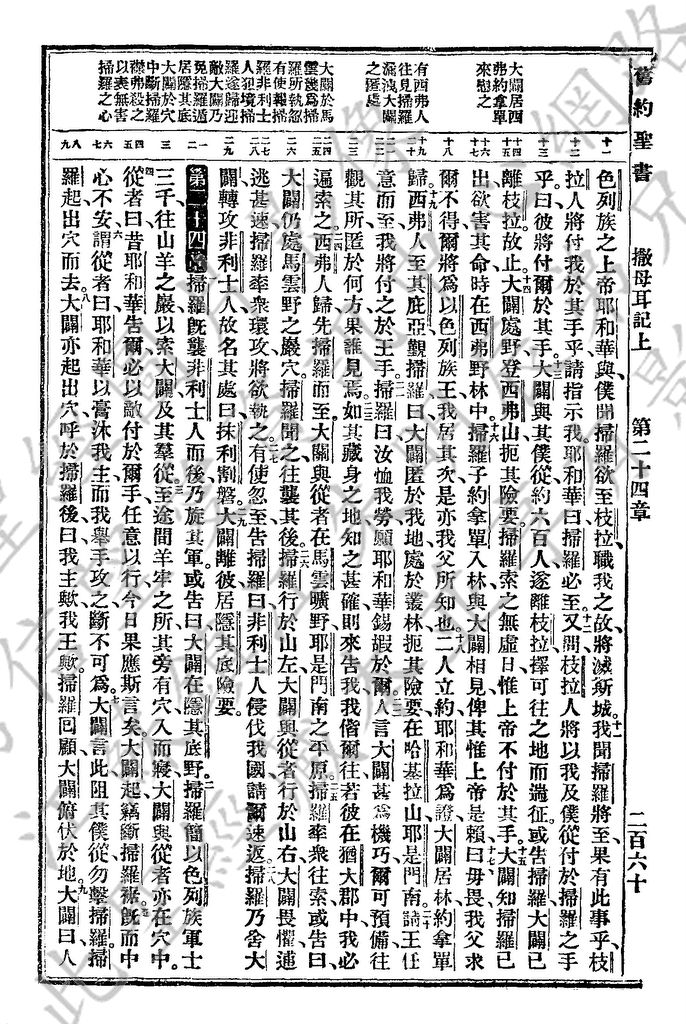 舊約聖書
撒母耳記上
第二十四章
二百六十
大闢居西
弗約拿單
來慰之
有西弗人
往見掃羅
洩大闢
之匿處
大闢於馬
雲幾爲掃
羅所執忽
有使報掃
羅非利士
人犯境掃
羅遂歸迎
敵大闢乃
免掃羅遁
居隱其底
大闢於穴
中斷掃羅
襟弗殺之
以表無害
掃羅之心
十一
十二
十三
十四
十五
十六
十七
十八
十九
二十
二一
二二
二三
二四
二五
二六
二七
二八
二九
一
二
三
四
五
六
七
八
九
色列族之上帝耶和華與僕聞掃羅欲至枝拉職我之故將滅斯城我聞掃羅將至果有此事乎枝
拉人將付我於其手乎請指示我耶和華曰掃羅必至又問枝拉人將以我及僕從付於掃羅之手
乎曰彼將付爾於其手大闢與其僕從約六百人遂離枝拉擇可往之地而遄征或告掃羅大闢已
離枝拉故止大闢處野登西弗山扼其險要掃羅索之無虛日惟上帝不付於其手大闢知掃羅已
出欲害其命時在西弗野林中掃羅子約拿單入林與大闢相見俾其惟上帝是賴曰毋畏我父求
爾不得爾將爲以色列族王我居其次是亦我父所知也二人立約耶和華爲證大闢居林約拿單
歸西弗人至其庇亞覲掃羅曰大闢匿於我地處於叢林扼其險要在哈基拉山耶是門南請王任
意而至我將付之於王手掃羅曰汝恤我勞願耶和華錫嘏於爾人言大闢甚爲機巧爾可預備往
觀其所匿於何方果誰見焉如其藏身之地知之甚確則來告我我偕爾往若彼在猶大郡中我必
遍索之西弗人歸先掃羅而至大闢與從者在馬雲曠野耶是門南之平原掃羅率衆往索或告曰
大闢仍處馬雲野之巖穴掃羅聞之往襲其後掃羅行於山左大闢與從者行於山右大闢畏懼逋
逃甚速掃羅率衆環攻將欲執之有使忽至告掃羅曰非利士人侵伐我國請爾速返掃羅乃舍大
闢轉攻非利士人故名其處曰抹利割磐大闢離彼居隱其底險要
第二十四章掃羅旣襲非利士人而後乃旋其軍或告曰大闢在隱其底野掃羅簡以色列族軍士
三千往山羊之巖以索大闢及其羣從至途間羊牢之所其旁有穴入而寢大闢與從者亦在穴中
從者曰昔耶和華告爾必以敵付於爾手任意以行今日果應斯言矣大闢起竊斷掃羅裾旣而中
心不安謂從者曰耶和華以膏沐我主而我舉手攻之斷不可爲大闢言此阻其僕從勿擊掃羅掃
羅起出穴而去大闢亦起出穴呼於掃羅後曰我主歟我王歟掃羅回顧大闢俯伏於地大闢曰人